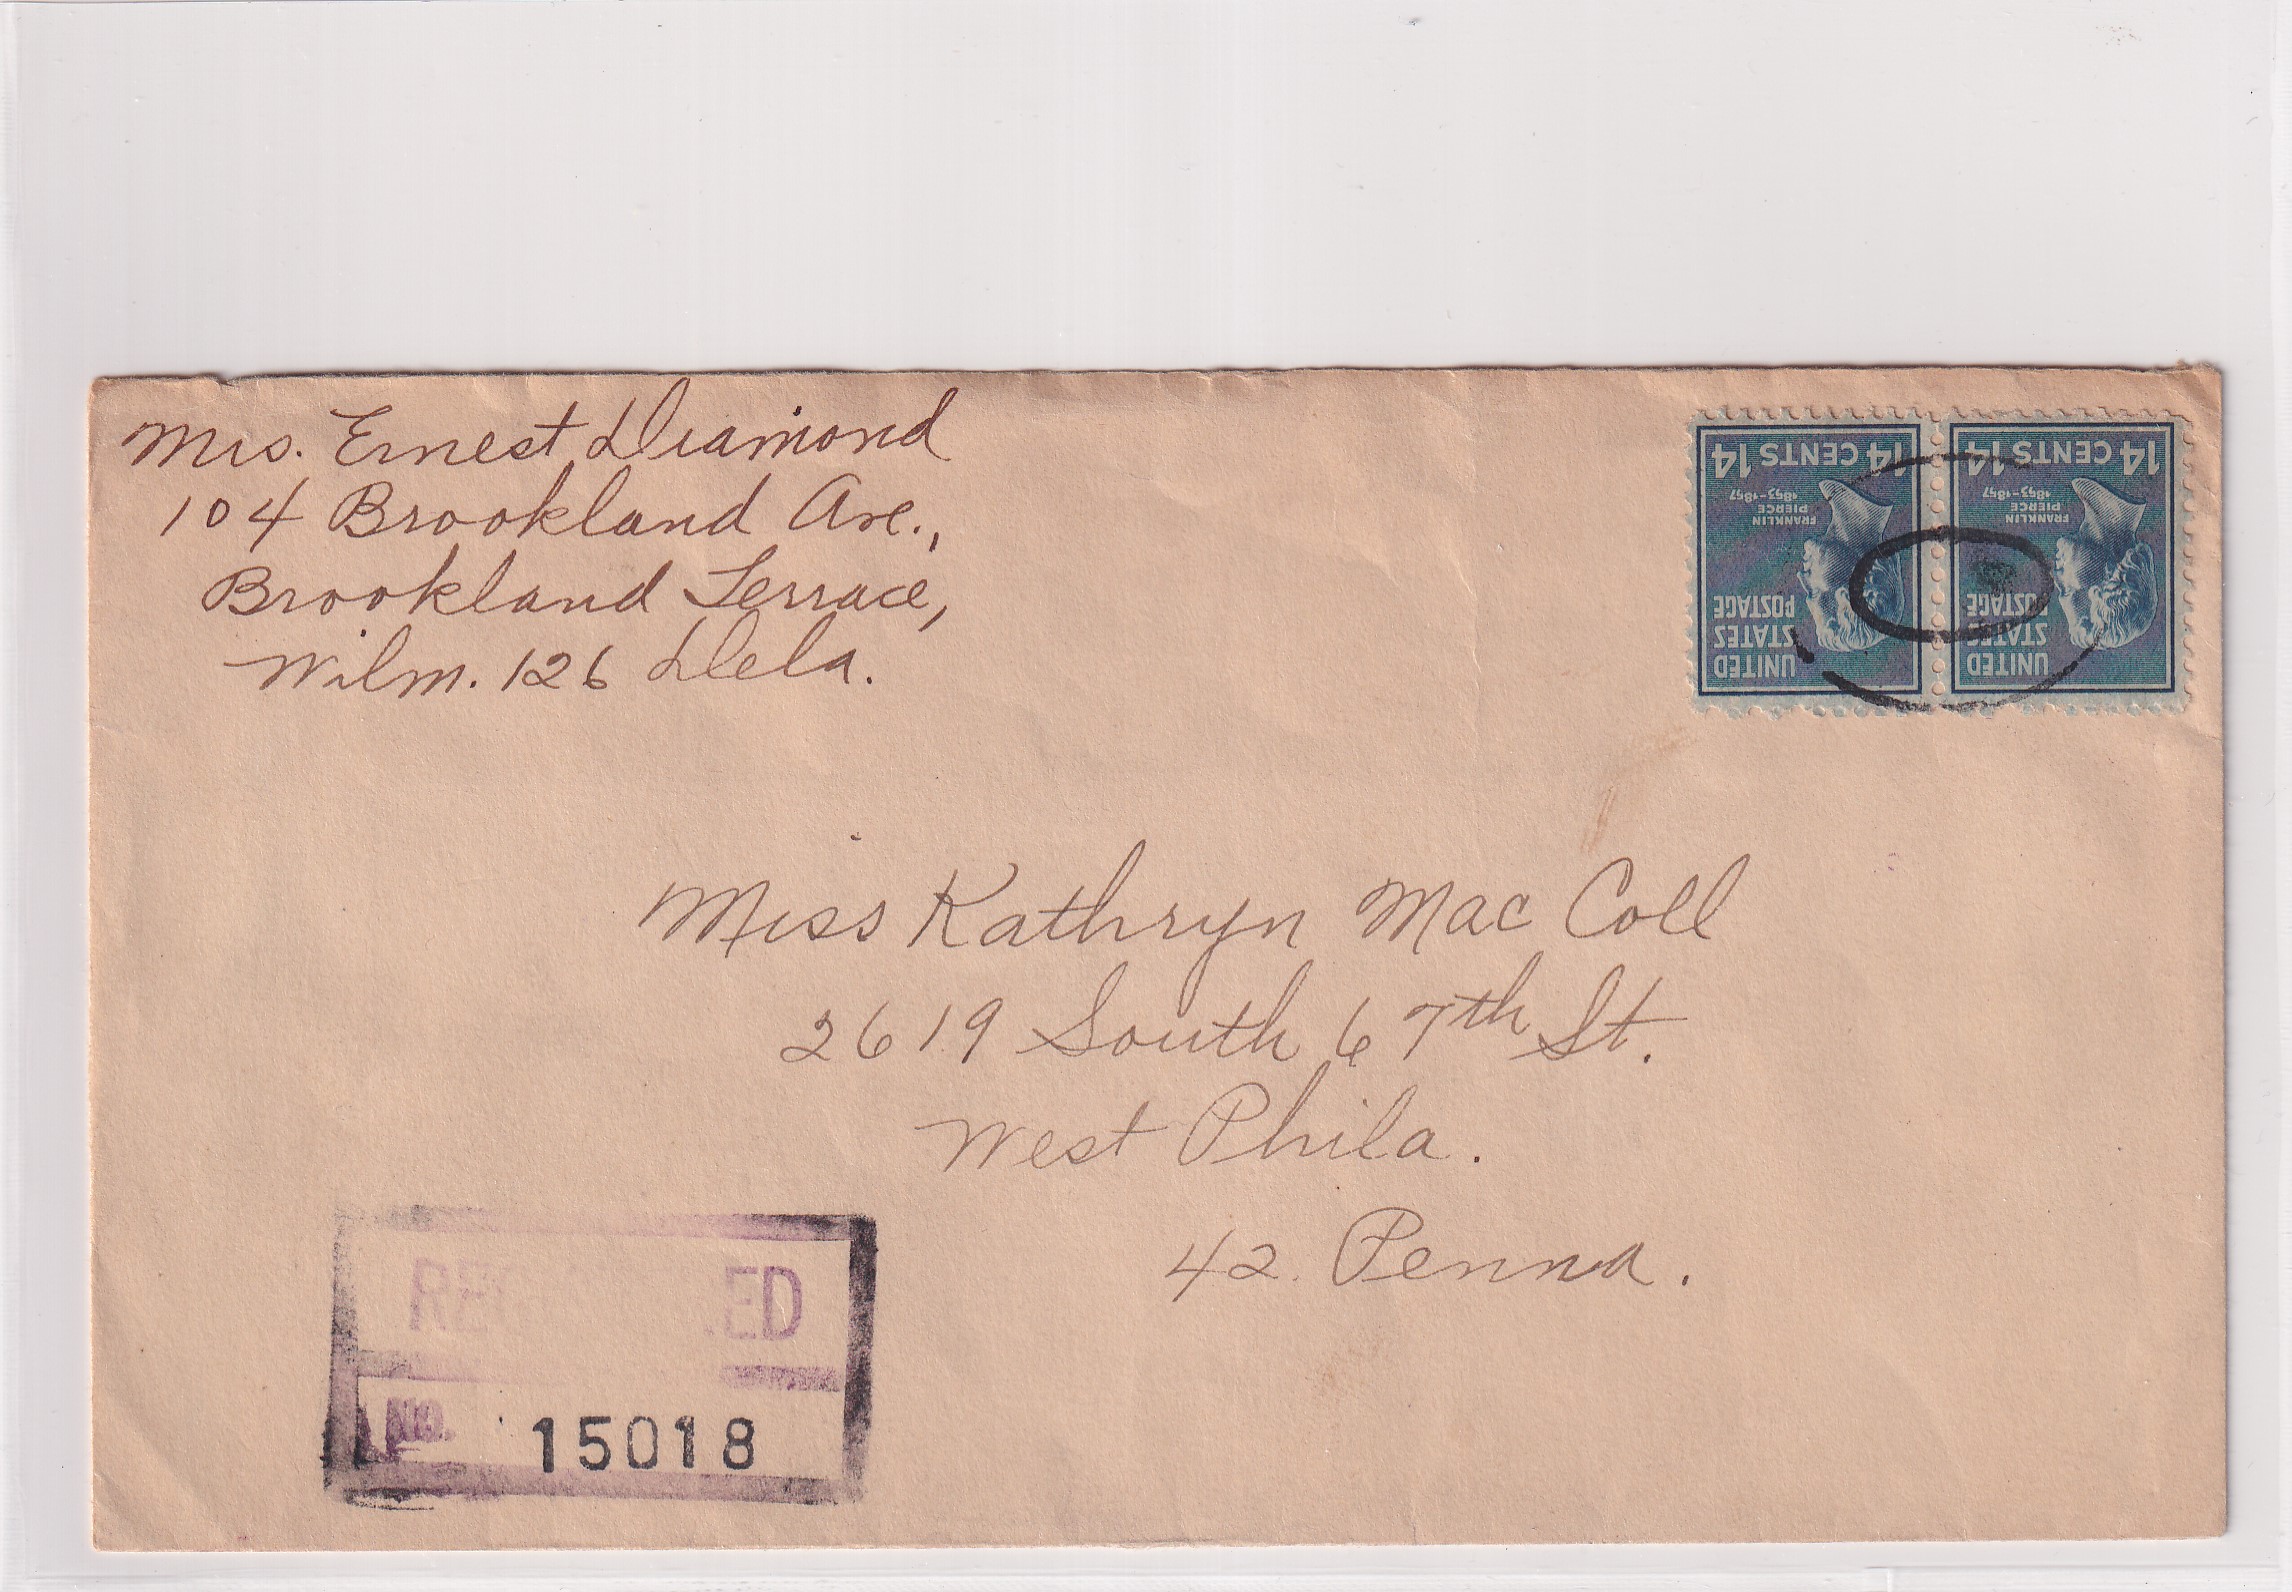 Mrs. Ernest Diamond
104 Brookland Ave.,
Brookland Terrace,
Wilm. 126 Dela.
14 CENTS 14
FRANKLIN
PIERCE
1853-1857
UNITED
STATES
POSTAGE
14 CENTS 14
FRANKLIN
PIERCE
1853-1857
UNITED
STATES
POSTAGE
Miss Kathryn Mac Coll
2619 South 67th St.
West Phila.
42 Penna.
NO. 15018